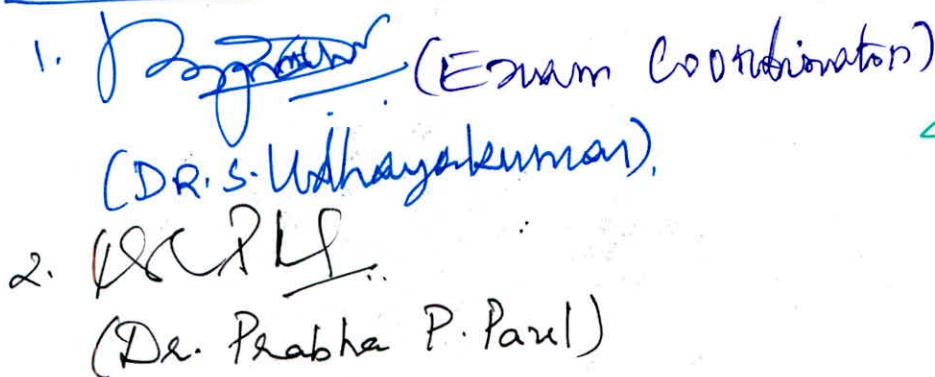 1. (Exam Coordinator)
(DR. S. Udhayakumar).
2.
(Dr. Prabha P. Parel)